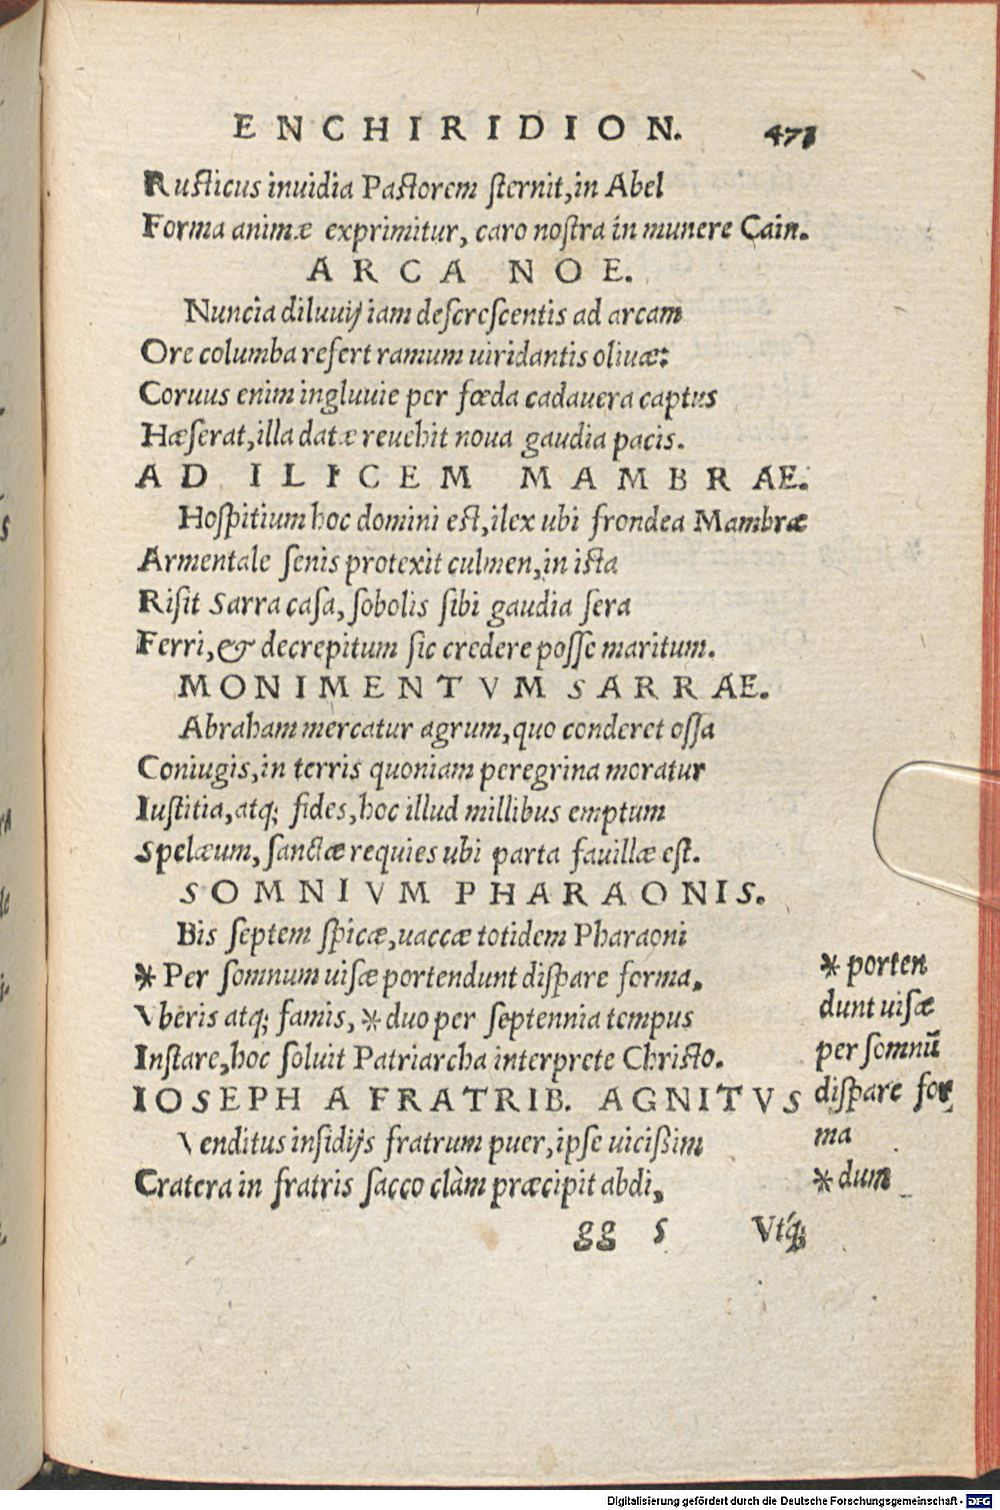 ENCHIRIDION. 473
Rusticus inuidia Pastorem sternit, in Abel
Forma animæ exprimitur, caro nostra in munere Cain.
ARCA NOE.
Nuncia diluuij iam descrescentis ad arcam
Ore columba refert ramum uiridantis oliuæ:
Coruus enim ingluuie per fœda cadauera captus
Hæserat, illa datæ reuehit noua gaudia pacis.
AD ILICEM MAMBRAE.
Hospitium hoc domini est, ilex ubi frondea Mambræ
Armentale senis protexit culmen, in ista
Risit Sarra casa, sobolis sibi gaudia sera
Ferri, & decrepitum sic credere posse maritum.
MONIMENTVM SARRAE.
Abraham mercatur agrum, quo conderet ossa
Coniugis, in terris quoniam peregrina moratur
Iustitia, atq; fides, hoc illud millibus emptum
Spelæum, sanctæ requies ubi parta fauillæ est.
SOMNIVM PHARAONIS.
Bis septem spicæ, uaccæ totidem Pharaoni
* Per somnum uisæ portendunt dispare forma,
Vberis atq; famis, * duo per septennia tempus
Instare, hoc soluit Patriarcha interprete Christo.
IOSEPH A FRATRIB. AGNITVS
Venditus insidijs fratrum puer, ipse uicißim
Cratera in fratris sacco clàm præcipit abdi,
* porten
dunt uisæ
per somnū
dispare for
ma
* dum
gg 5 Vtq́;
Digitalisierung gefördert durch die Deutsche Forschungsgemeinschaft - DFG